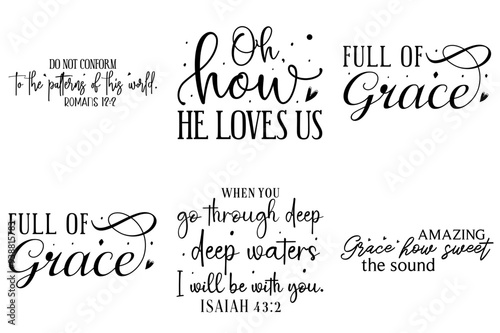 DO NOT CONFORM
to the patterns of this world.
ROMANS 12:2
Oh,
how
HE LOVES US
FULL OF
Grace
FULL OF
Grace
WHEN YOU
go through deep
deep waters
I will be with you.
ISAIAH 43:2
AMAZING
Grace how sweet
the sound
Adobe Stock